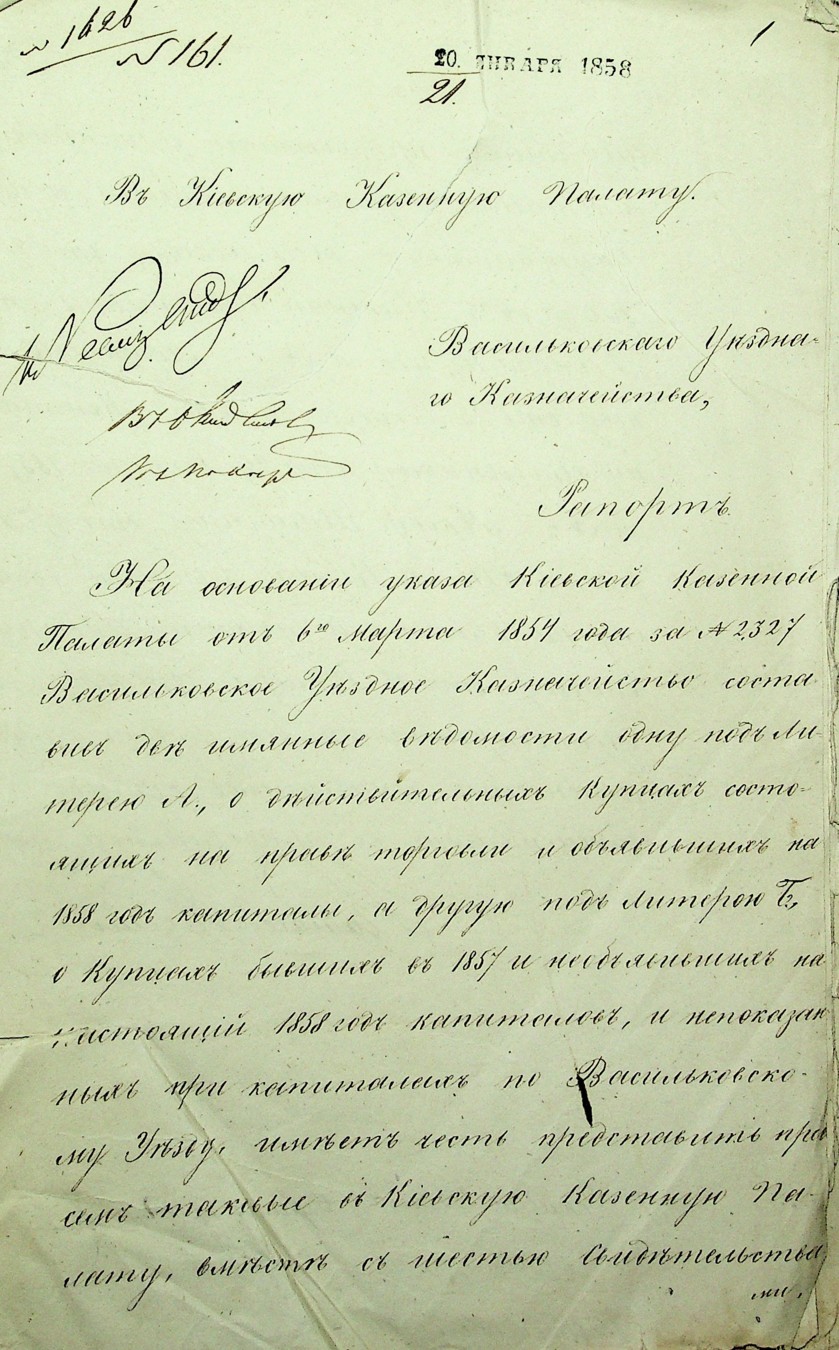 № 1626
№ 161.
1
20. ЯНВАРЯ 1858
21.
Въ Кіевскую Казенную Палату.
Васильковскаго Уѣздна-
го Казначейства,
Рапортъ.
На основаніи указа Кіевской Казенной
Палаты отъ 6го Марта 1854 года за № 2327
Васильковское Уѣздное Казначейство соста
вивъ двѣ имянные вѣдомости одну подъ Ли-
терею А., о дѣйствительныхъ Купцахъ состо-
ящихъ на правѣ торговли и объявившихъ на
1858 годъ капиталы, а другую подъ Литерою Б,
о Купцахъ бывшихъ въ 1857 и необъявившихъ на
настоящій 1858 годъ капиталовъ, и непоказан
ныхъ при капиталахъ по Васильковско-
му Уѣзду, имѣетъ честь представить при
семъ таковые въ Кіевскую Казенную Па-
лату, вмѣстѣ съ шестью Свидѣтельства
ми,